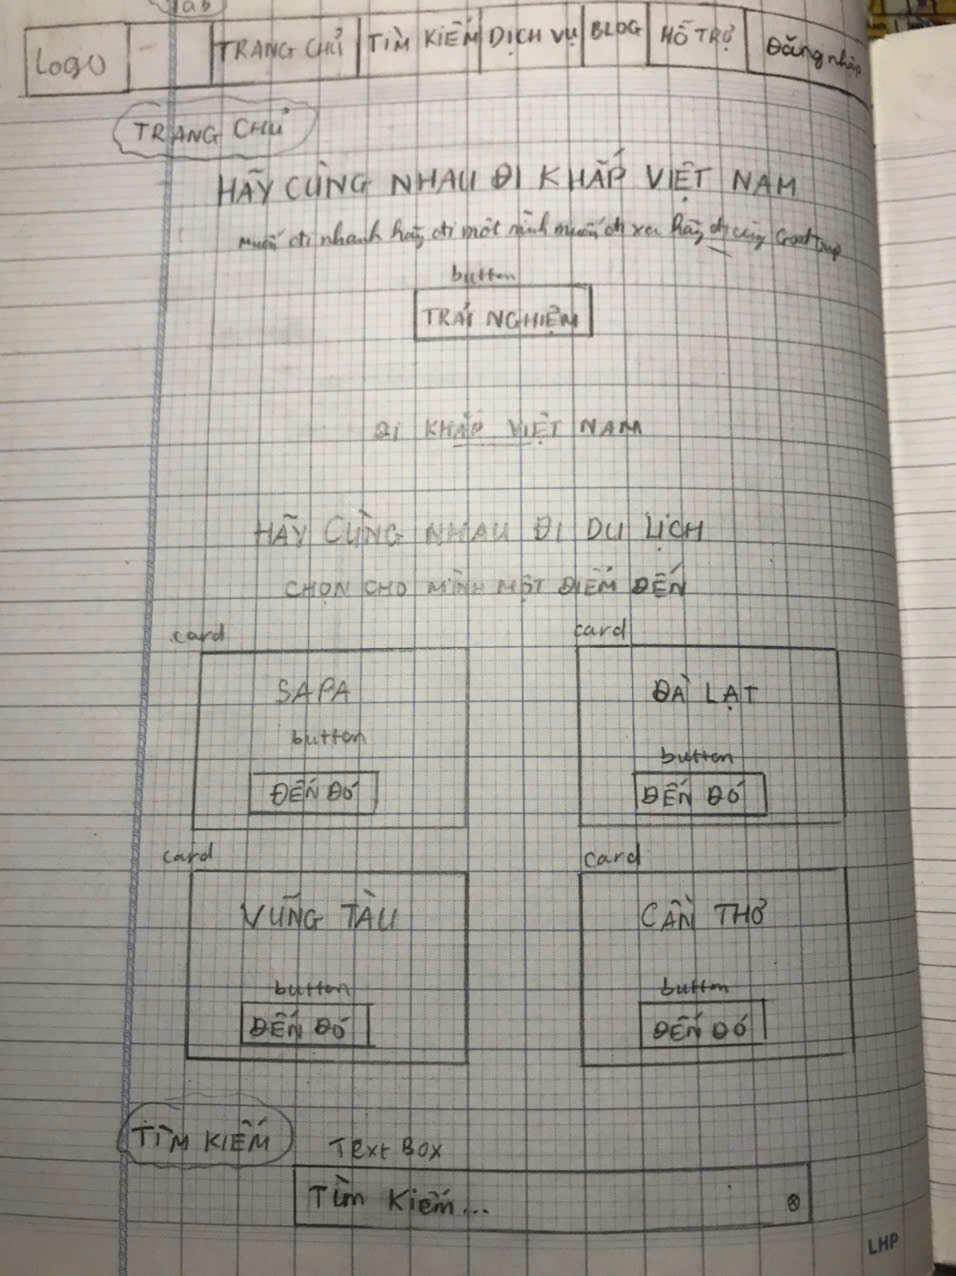 Tab
Logo TRANG CHỦ TÌM KIẾM DỊCH VỤ BLOG HỖ TRỢ Đăng nhập
TRANG CHỦ
HÃY CÙNG NHAU ĐI KHẮP VIỆT NAM
muốn đi nhanh hãy đi một mình muốn đi xa hãy đi cùng
button
TRẢI NGHIỆM
ĐI KHẮP VIỆT NAM
HÃY CÙNG NHAU ĐI DU LỊCH
CHỌN CHO MÌNH MỘT ĐIỂM ĐẾN
card
SAPA
button
ĐẾN ĐÓ
card
ĐÀ LẠT
button
ĐẾN ĐÓ
card
VŨNG TÀU
button
ĐẾN ĐÓ
card
CẦN THƠ
button
ĐẾN ĐÓ
TÌM KIẾM
Text BOX
Tìm Kiếm...
LHP